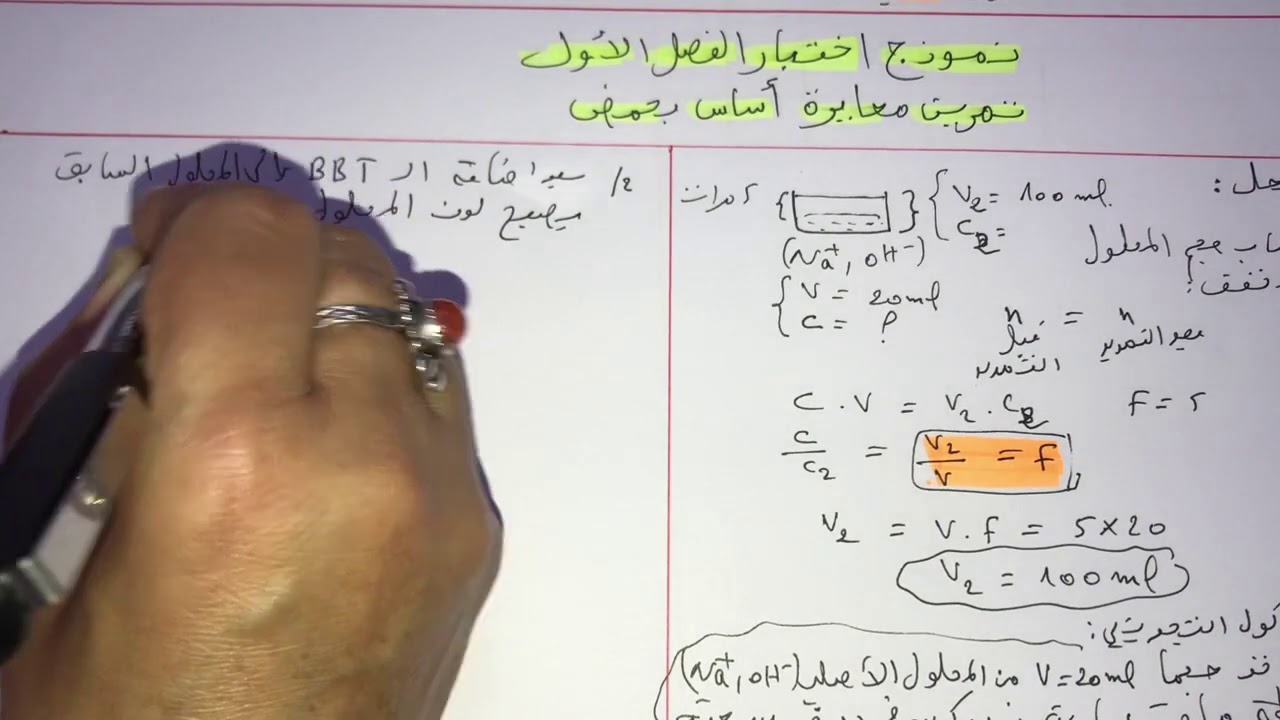 نموذج اختبار الفصل الأول
تمرين معايرة أساس بحمض
حل:
5 مرات
V₂ = 100 ml
C₂ =
(Na⁺, OH⁻)
V = 20 ml
C = ?
اب حجم المحلول
n = n
قبل التمديد
بعد التمديد
C . V = V₂ . C₂
F = 5
C/C₂ = V₂/V = f
V₂ = V . f = 5 × 20
V₂ = 100 ml
كول التجريبي:
خذ حجما V = 20 ml من المحلول الأصلي (Na⁺, OH⁻)
2/ بعد اضافة الـ BBT الى المحلول السابق
يصبح لون المحلول